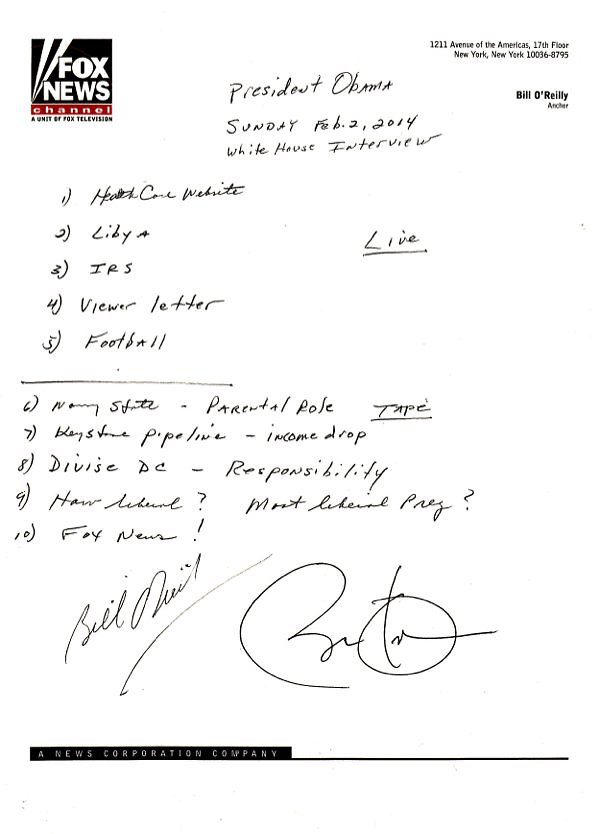 FOX
NEWS
channel
A UNIT OF FOX TELEVISION
1211 Avenue of the Americas, 17th Floor
New York, New York 10036-8795
Bill O'Reilly
Anchor
President Obama
Sunday Feb. 2, 2014
White House Interview
1) HealthCare Website
2) Libya
Live
3) IRS
4) Viewer letter
5) Football
6) Nanny State - Parental Role TAPE
7) Keystone pipeline - income drop
8) Divise DC - Responsibility
9) How liberal? Most liberal Prez?
10) Fox News!
Bill O'Reilly
A NEWS CORPORATION COMPANY